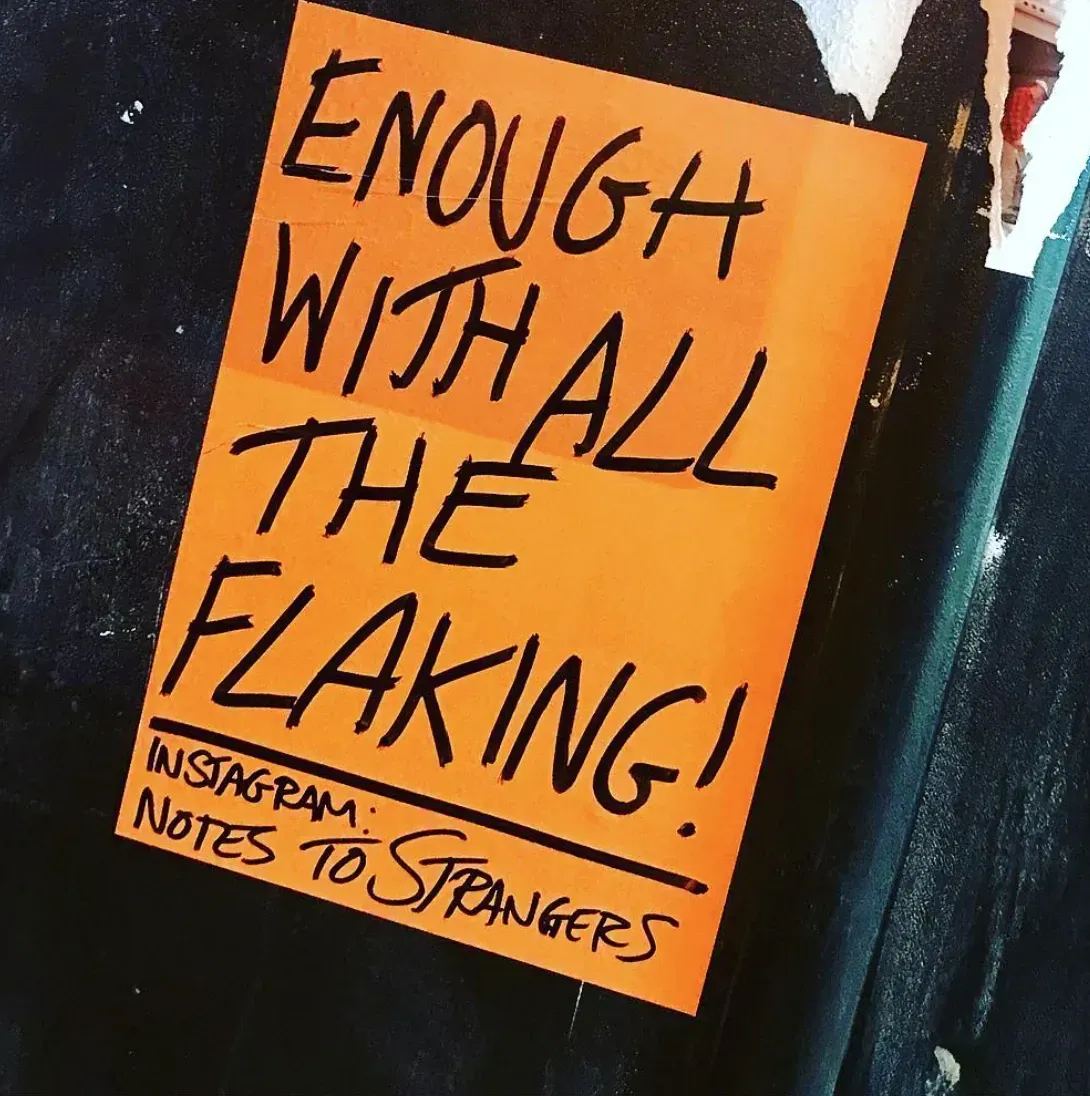 ENOUGH
WITH ALL
THE
FLAKING!
INSTAGRAM:
NOTES TO STRANGERS